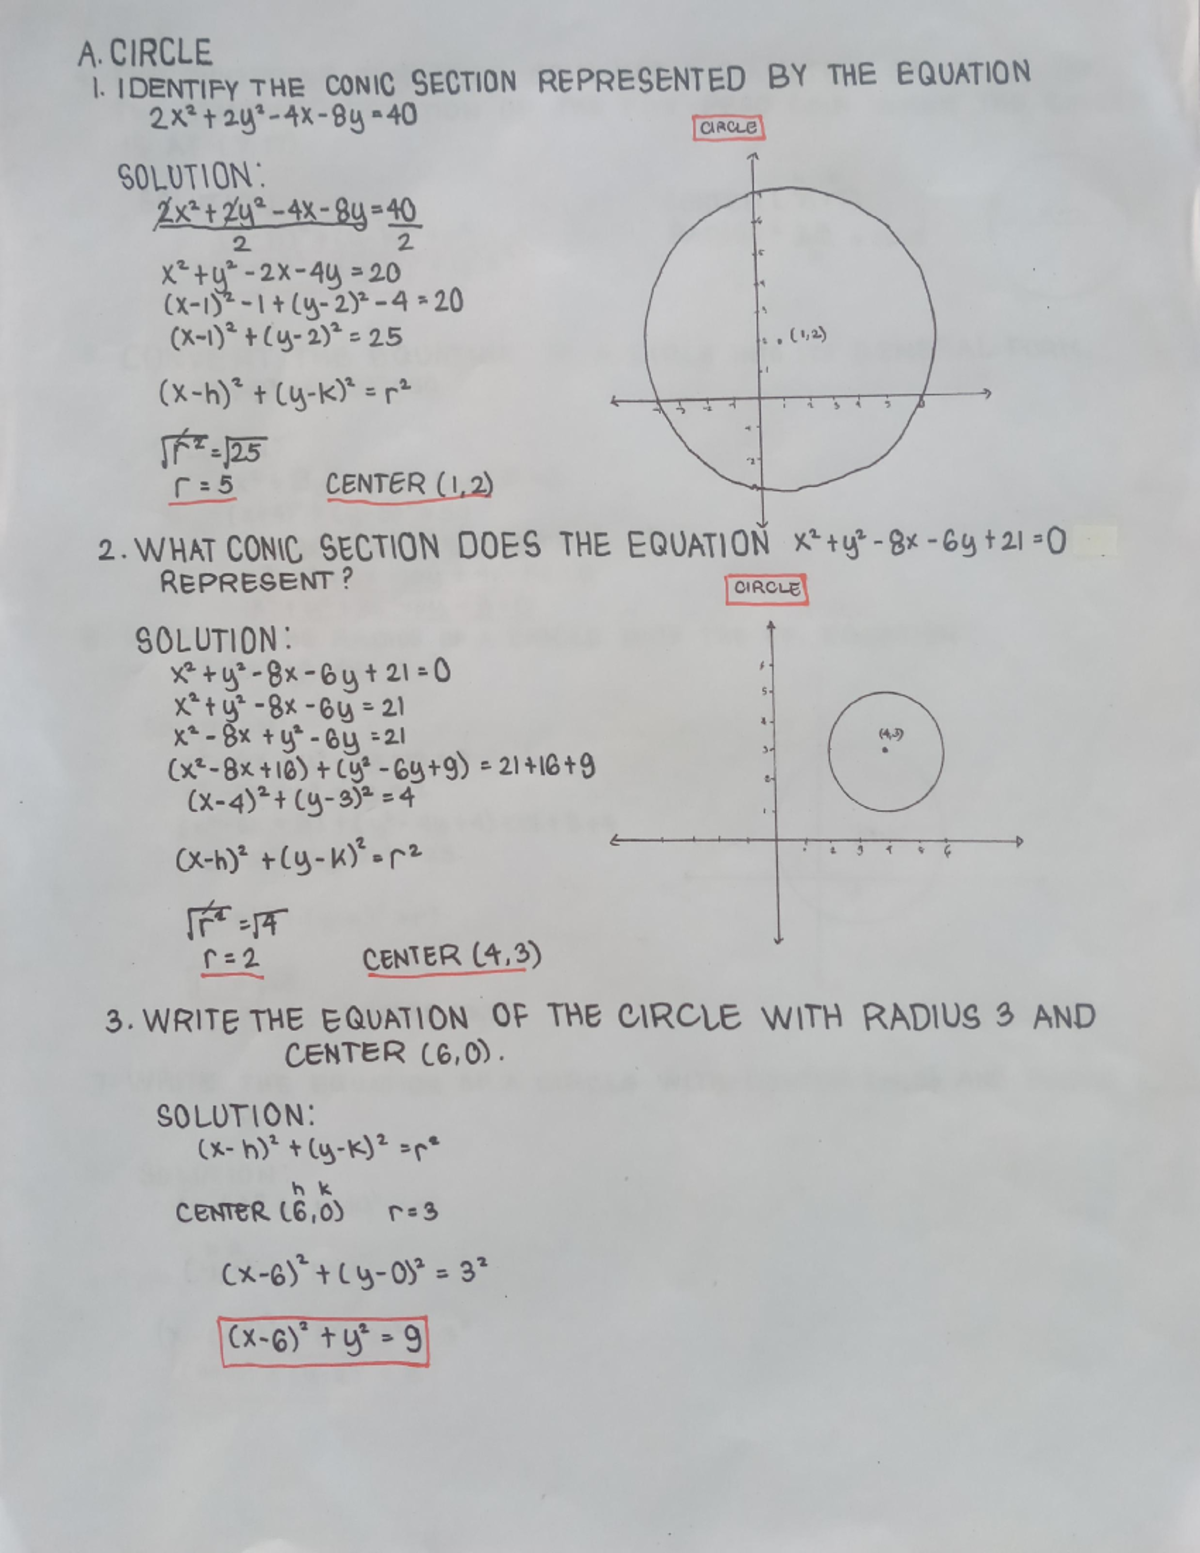 A. CIRCLE
1. IDENTIFY THE CONIC SECTION REPRESENTED BY THE EQUATION
2x² + 2y² - 4x - 8y = 40
CIRCLE
SOLUTION:
2x² + 2y² - 4x - 8y = 40
2 2
x² + y² - 2x - 4y = 20
(x-1)² - 1 + (y-2)² - 4 = 20
(x-1)² + (y-2)² = 25
(1,2)
(x-h)² + (y-k)² = r²
√r² = √25
r = 5 CENTER (1,2)
2. WHAT CONIC SECTION DOES THE EQUATION x² + y² - 8x - 6y + 21 = 0
REPRESENT?
CIRCLE
SOLUTION:
x² + y² - 8x - 6y + 21 = 0
x² + y² - 8x - 6y = 21
x² - 8x + y² - 6y = 21
(4,3)
(x² - 8x + 16) + (y² - 6y + 9) = 21 + 16 + 9
(x-4)² + (y-3)² = 4
(x-h)² + (y-k)² = r²
√r² = √4
r = 2 CENTER (4,3)
3. WRITE THE EQUATION OF THE CIRCLE WITH RADIUS 3 AND
CENTER (6,0).
SOLUTION:
(x-h)² + (y-k)² = r²
h k
CENTER (6,0) r = 3
(x-6)² + (y-0)² = 3²
(x-6)² + y² = 9